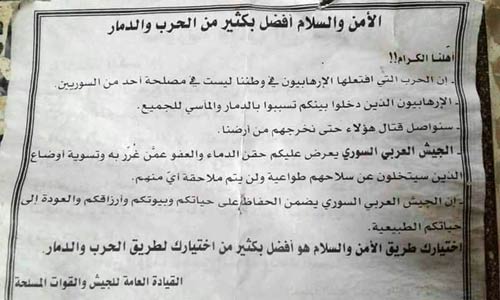 الأمن والسلام أفضل بكثير من الحرب والدمار
أهلنا الكرام!!
ـ إن الحرب التي افتعلها الإرهابيون في وطننا ليست في مصلحة أحد من السوريين.
ـ الإرهابيون الذين دخلوا بينكم تسببوا بالدمار والمآسي للجميع.
ـ سنواصل قتال هؤلاء حتى نخرجهم من أرضنا.
ـ الجيش العربي السوري يعرض عليكم حقن الدماء والعفو عمّن غُرّر به وتسوية أوضاع
الذين سيتخلون عن سلاحهم طواعية ولن يتم ملاحقة أيّ منهم.
ـ إن الجيش العربي السوري يضمن الحفاظ على حياتكم وبيوتكم وأرزاقكم والعودة إلى
حياتكم الطبيعية.
اختيارك طريق الأمن والسلام هو أفضل بكثير من اختيارك لطريق الحرب والدمار.
القيادة العامة للجيش والقوات المسلحة